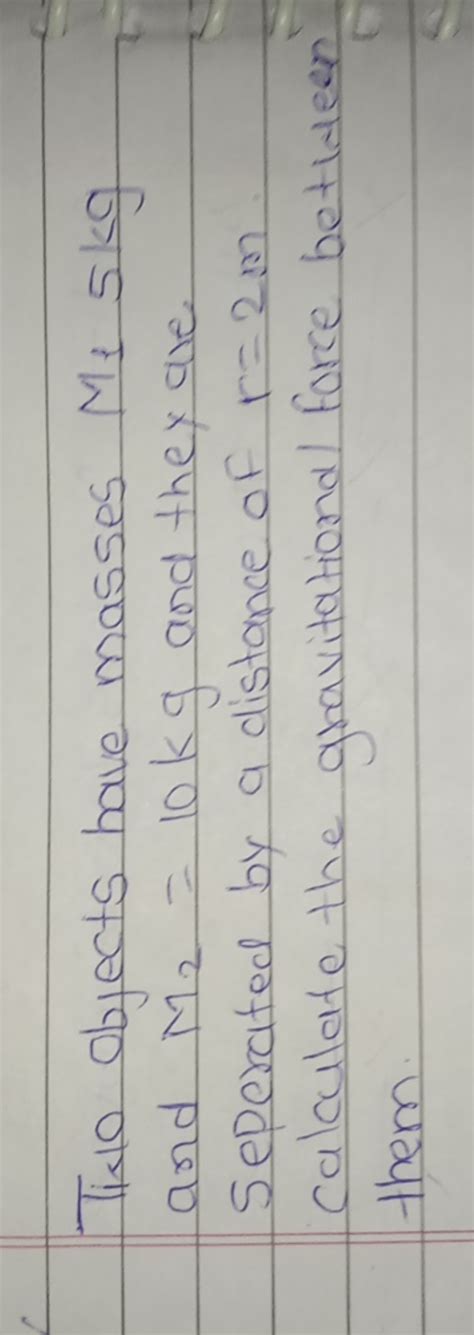 Two objects have masses M1 5kg
and M2 = 10kg and they are
Seperated by a distance of r=2m.
Calculate the gravitational force between
them.